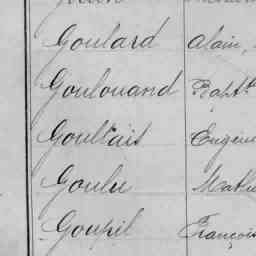 Goulard Alain,
Goulouand Bapt.te
Goultais Eugène
Goulu Mathu
Goupil François